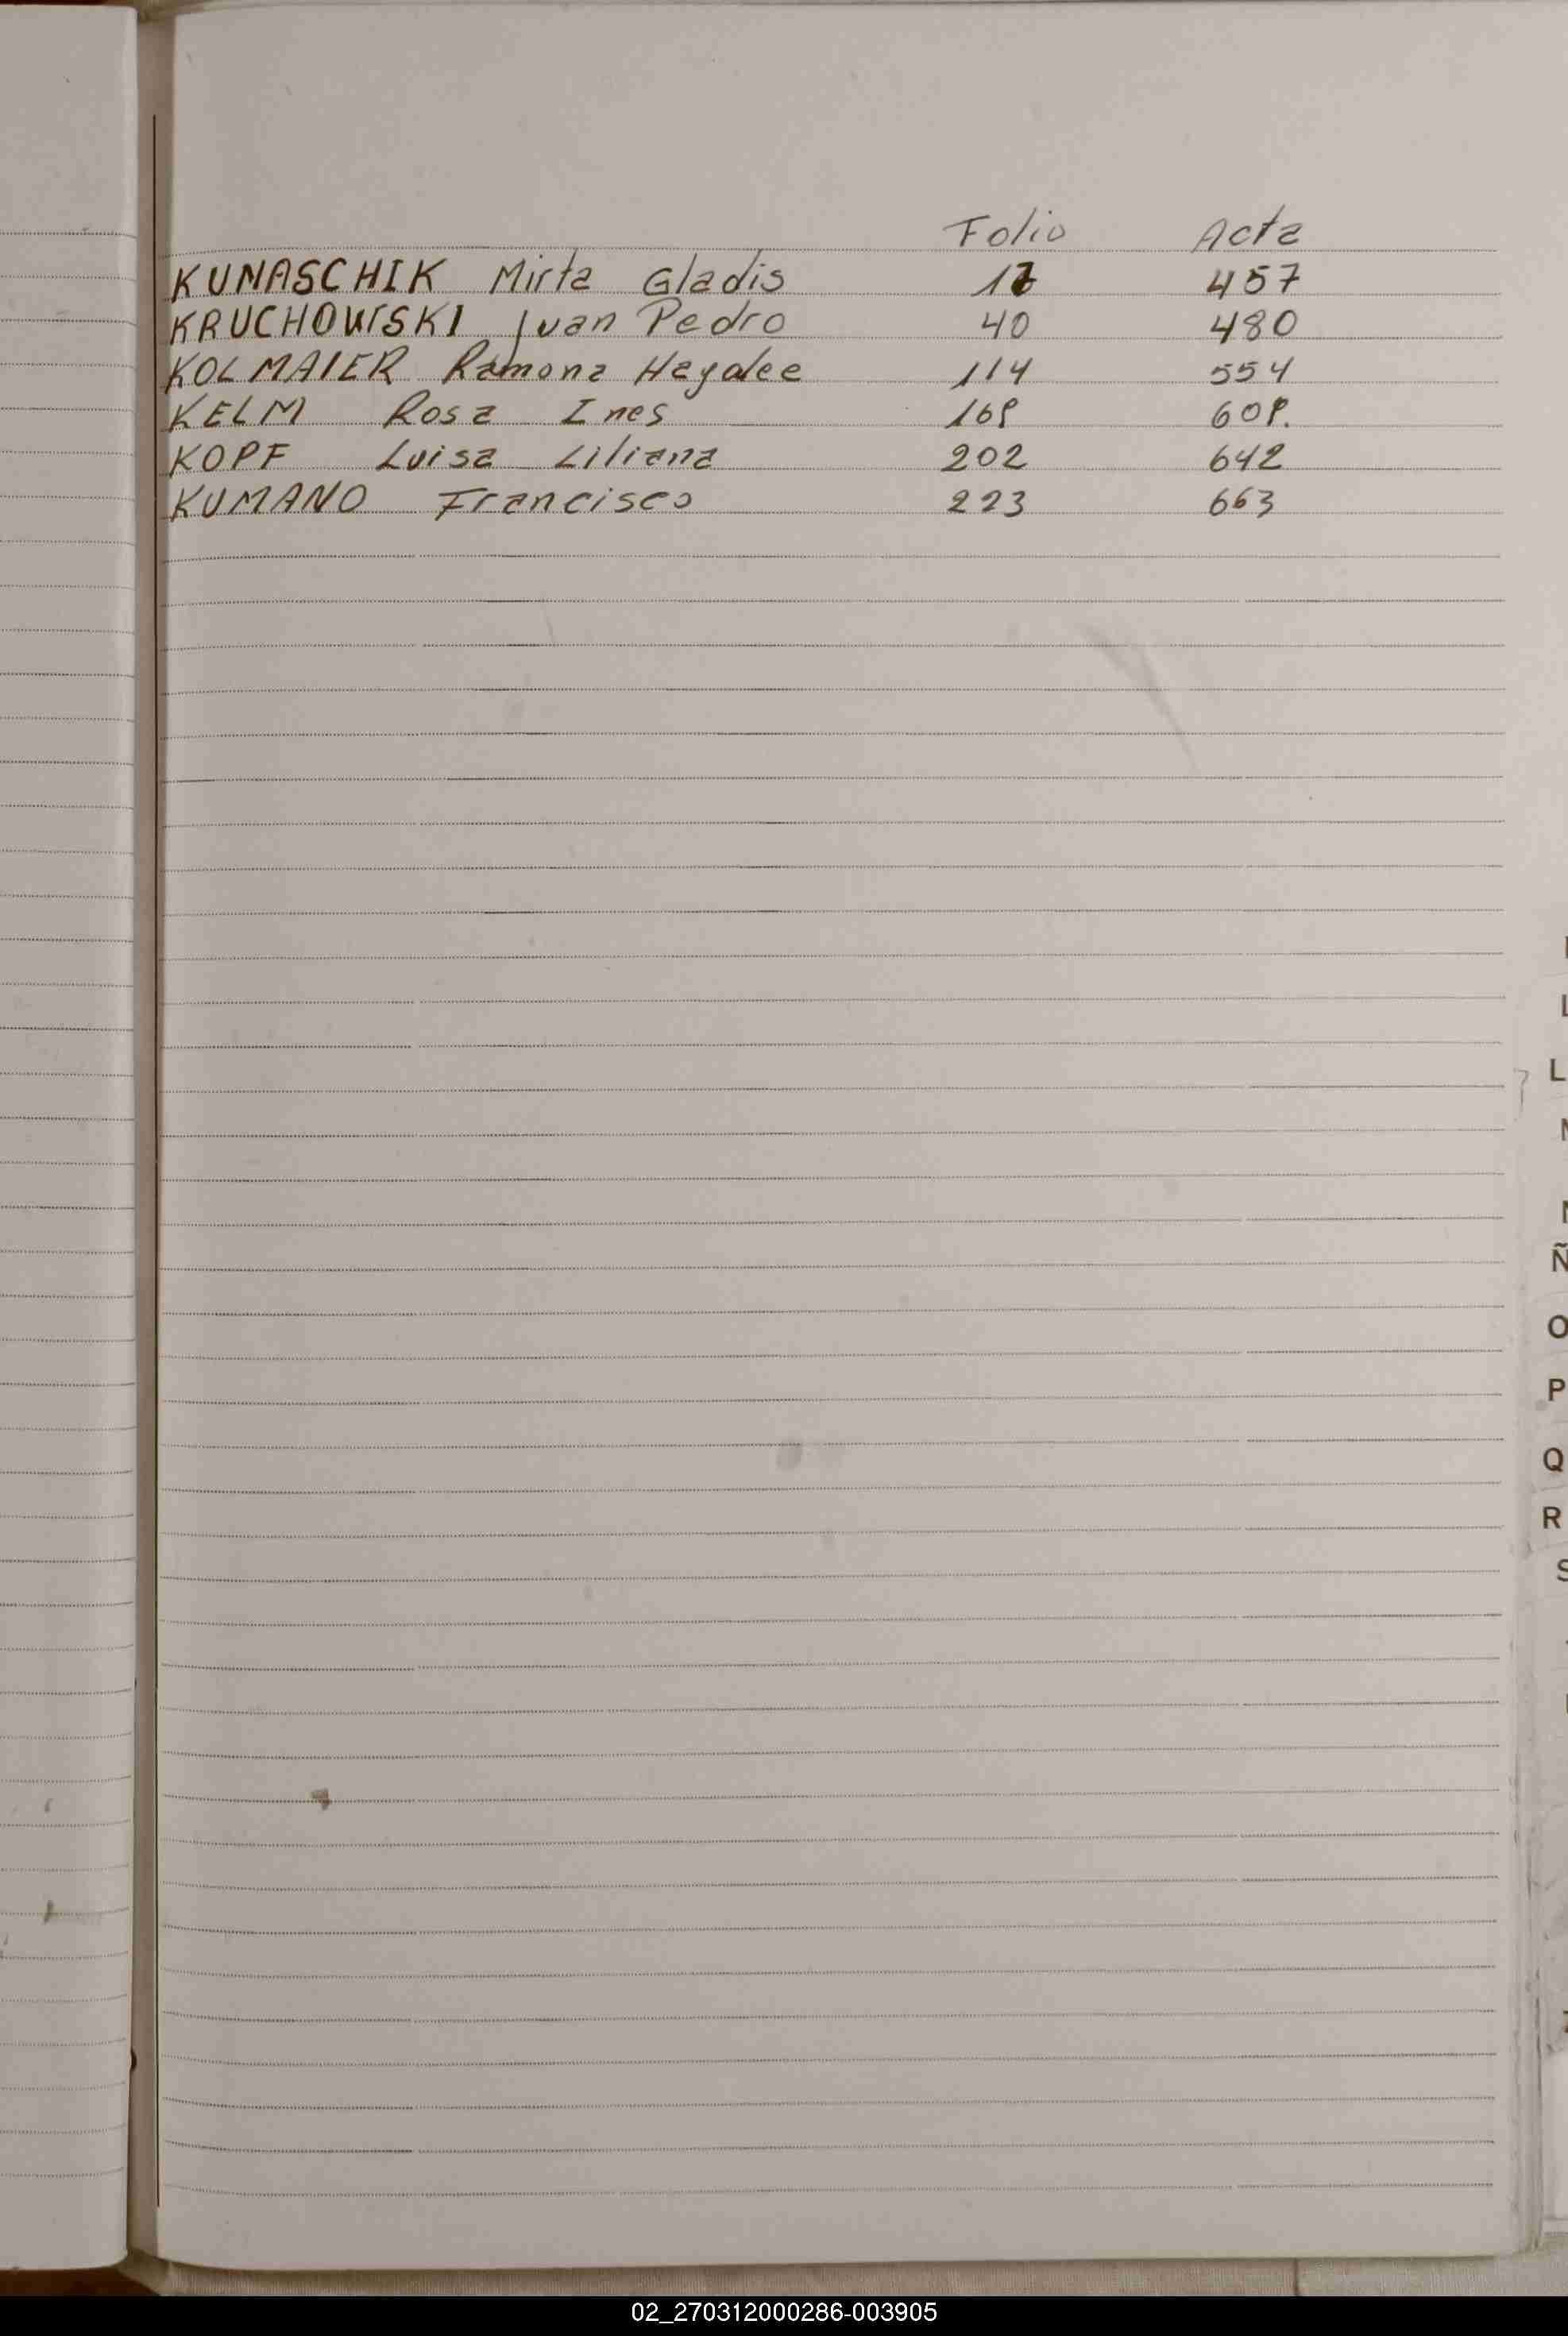 Folio Acta
KUNASCHIK Mirta Gladis 17 457
KRUCHOWSKI Juan Pedro 40 480
KOLMAIER Ramona Haydee 114 554
KELM Rosa Ines 169 609.
KOPF Luisa Liliana 202 642
KUMANO Francisco 223 663
L
L
Ñ
O
P
Q
R
S
02_270312000286-003905